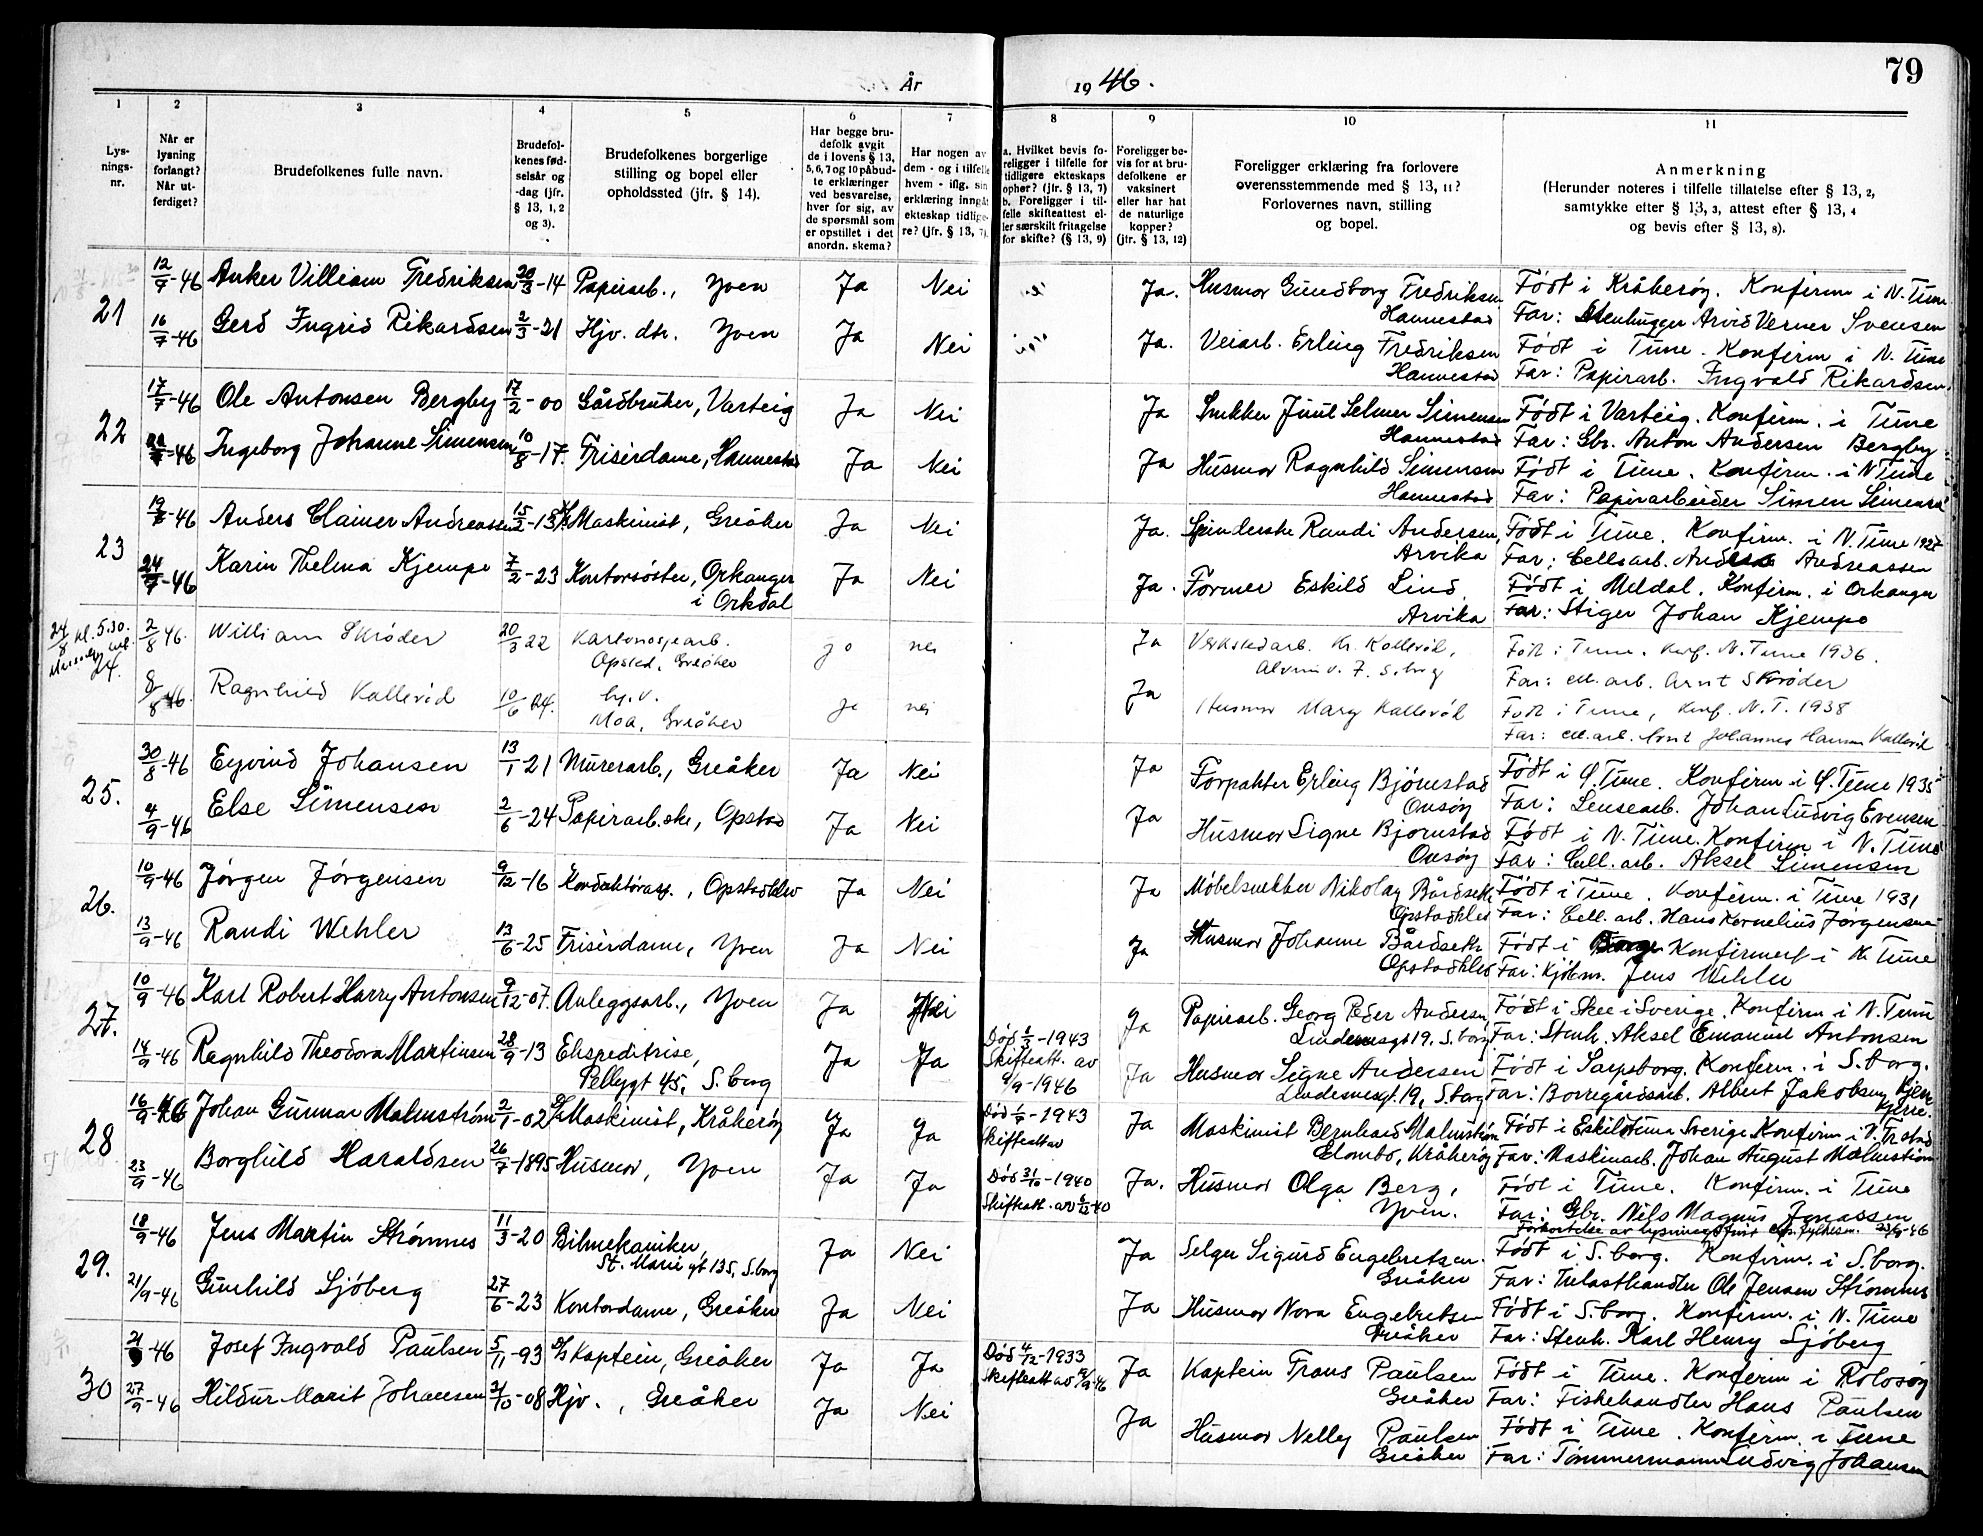 79
År 1946.
1 2 3 4 5 6 7 8 9 10 11
Lysningsnr.
Når er lysning forlangt? Når utferdiget?
Brudefolkenes fulle navn.
Brudefolkenes fødselsår og -dag (jfr. § 13, 1, 2 og 3).
Brudefolkenes borgerlige stilling og bopel eller opholdssted (jfr. § 14).
Har begge brudefolk avgit de i lovens § 13, 5, 6, 7 og 10 påbudte erklæringer ved besvarelse, hver for sig, av de spørsmål som er opstillet i det anordn. skema?
Har nogen av dem - og i tilfelle hvem - iflg. sin erklæring inngåt ekteskap tidligere? (jfr. § 13, 7).
a. Hvilket bevis foreligger i tilfelle for tidligere ekteskaps ophør? (jfr. § 13, 7)
b. Foreligger i tilfelle skifteattest eller særskilt fritagelse for skifte? (§ 13, 9)
Foreligger bevis for at brudefolkene er vaksinert eller har hat de naturlige kopper? (jfr. § 13, 12)
Foreligger erklæring fra forlovere overensstemmende med § 13, 11? Forlovernes navn, stilling og bopel.
Anmerkning
(Herunder noteres i tilfelle tillatelse efter § 13, 2, samtykke efter § 13, 3, attest efter § 13, 4 og bevis efter § 13, 8).
21
12/7-46 Anker Villiam Fredriksen 20/3-14 Papirarb., Yven Ja Nei Ja. Husmor Gundborg Fredriksen Hannestad Født i Kråkerøy. Konfirm i N. Tune
Far: Stenhugger Arvid Verner Svensen
16/7-46 Gerd Ingrid Rikardsen 2/3-21 Hjv. dtr. Yven Ja Nei Ja. Veiarb. Erling Fredriksen Hannestad Født i Tune. Konfirm i N. Tune
Far: Papirarb. Ingvald Rikardsen.
22
17/7-46 Ole Antonsen Bergby 17/2-00 Gårdbruker, Varteig Ja Nei Ja Snekker Juul Selmer Simensen Hannestad Født i Varteig. Konfirm. i Tune
Far: Gbr. Anton Andersen Bergby
-46 Ingeborg Johanne Simensen 10/8-17. Frisérdame, Hannestad Ja Nei Ja Husmor Ragnhild Simensen Hannestad Født i Tune. Konfirm. i N Tune
Far: Papirarbeider Simen Simensen
23
-46 Anders Clamer Andreassen 15/2-13 Maskinist, Greåker Ja Nei Ja. Spinderske Randi Andersen, Arvika Født i Tune. Konfirm. i N. Tune 1927
Far: Cellarb. Andreas Andreassen
24/7-46 Karin Thelma Kjempe 7/2-23 Kontorsøster, Orkanger i Orkdal Ja Nei Ja. Former Eskild Lind Arvika Født i Meldal. Konfirm. i Orkanger
Far: Stiger Johan Kjempe
24/8 kl. 5.30.
24.
2/8 46. William Skrøder 20/3 22 Kartonasjearb. Opsted, Greåker ja nei Ja Verkstedarb. Kr. Kallerød, Alvim v. F. S.borg Født i Tune. Konf. N. Tune 1936.
Far: cell. arb. Arnt Skrøder
8/8 46. Ragnhild Kallerød 10/6 24. hj.v. Moa, Greåker ja nei Ja Husmor Mary Kallerød Født i Tune, Konf. N. T. 1938
Far: cell.arb. Arnt Johannes Hansen Kallerød
25.
30/8-46 Eyvind Johansen 13/1 21 Murerarb., Greåker Ja Nei Ja Forpakter Erling Bjørnstad Onsøy Født i Ø Tune. Konfirm i Ø. Tune 1935
Far: Lensearb. Johan Ludvig Evensen
4/9-46 Else Simensen 2/6-24 Papirarb.ske, Opstad Ja Nei Ja Husmor Signe Bjørnstad Onsøy Født i N. Tune. Konfirm i N. Tune
Far: Cell. arb. Aksel Simensen
26.
10/9-46 Jørgen Jørgensen 9/12-16 Konduktørasp., Opstadkleo Ja Nei Ja Møbelsnekker Nikolay Bårdseth Opstadkleo Født i Tune. Konfirm. i Tune 1931
Far: Cell. arb. Hans Kornelius Jørgensen
13/9-46 Randi Wehler 13/6-25 Frisérdame, Yven Ja Nei Ja Husmor Johanne Bårdseth Opstadkleo Født i Borge Konfirmert i N. Tune
Far: Kjølm. Jens Wehler
27.
10/9-46 Karl Robert Harry Antonsen 9/12-07. Anleggsarb., Yven Ja Nei Ja Papirarb. Georg Peder Andersen, Lindemsgt 19. S.borg Født i Skee i Sverige. Konfirm i N. Tune
Far: Stenh. Aksel Emanuel Antonsen
14/9-46 Ragnhild Theodora Martinsen 28/9-13 Ekspeditrise, Pellygt 45, S. borg Ja Ja Død -1943 Skifteatt. av 6/9-1946 Ja Husmor Signe Andersen Lindemsgt. 19, S.borg Født i Sarpsborg. Konfirm. i S.borg.
Far: Borregårdsarb. Albert Jakobsen Kjerre.
28
16/9-46 Johan Gunnar Malmstrøm 2/1-02 Maskinist, Kråkerøy Ja Ja Død -1943 Skifteattav Ja Maskinist Bernhard Malmstrøm Glombo, Kråkerøy Født i Eskilstuna Sverige Konfirm i
Far: Maskinarb. Johan August Malmstrøm
23/9-46 Borghild Haraldsen 26/7-1895 Husmor, Yven Ja Ja Død 31/10-1940 Skifteatt. av -40 Ja. Husmor Olga Berg, Yven. Født i Tune. Konfirm. i Tune
Far: Gbr. Nils Magnus Jonassen
Forkortelse av lysningsfrist
29.
18/9-46 Jens Martin Strømnes 11/3-20 Bilmekaniker, St. Marie gt 135, S.borg Ja Nei Ja Selger Sigurd Engebretsen. Greåker Født i S. borg. Konfirm. i S.borg.
Far: Trelasthandler Ole Jensen Strømnes
21/9-46 Gunhild Sjøberg 27/6-23 Kontordame, Greåker Ja Nei Ja Husmor Nora Engebretsen Greåker Født i S.borg. Konfirm. i N. Tune
Far: Stenh. Karl Henry Sjøberg
30
21/9-46 Josef Ingvald Paulsen 5/11-93 Kaptein, Greåker Ja Ja Død 4/12-1933 Skifteatt av -46 Ja Kaptein Frans Paulsen Greåker Født i Tune. Konfirm i Rolvsøy
Far: Fiskehandler Hans Paulsen
27/9-46 Hildur Marit Johansen -08 Hjv., Greåker Ja Nei Ja Husmor Nelly Paulsen Greåker Født i Tune. Konfirm. i Tune
Far: Tømmermann Ludvig Johansen